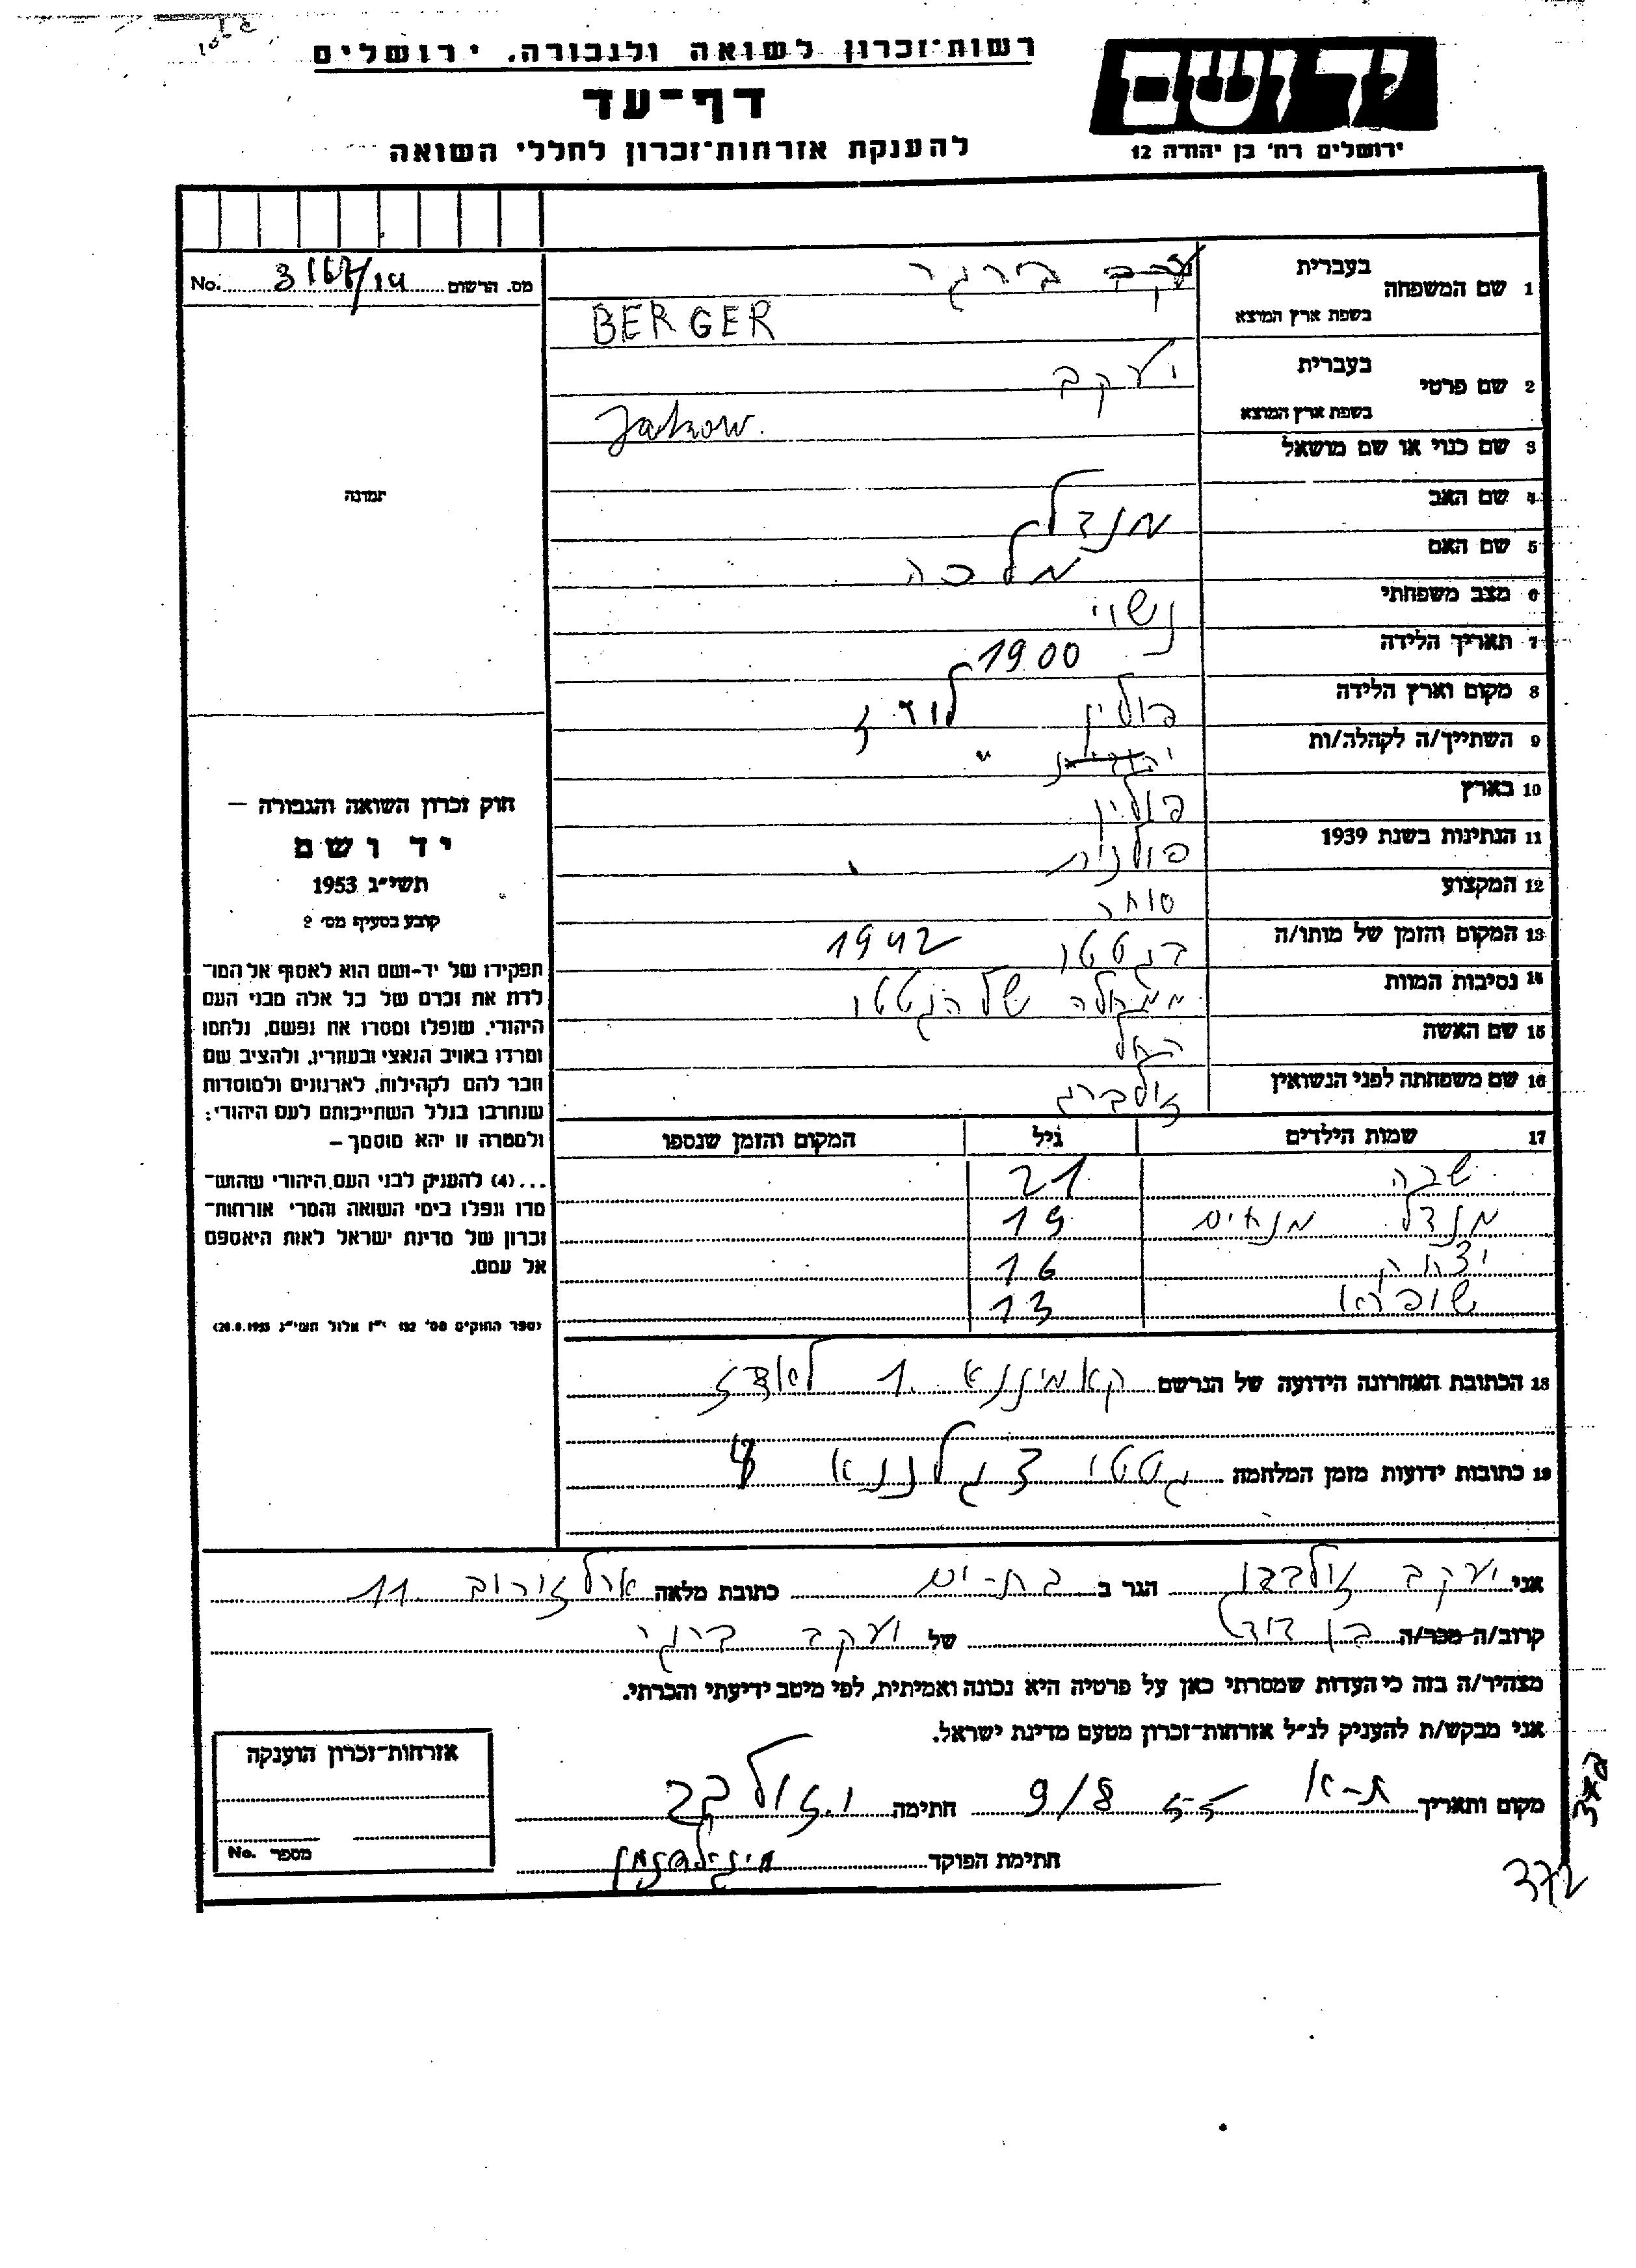 רשות־זכרון לשואה ולגבורה, ירושלים
יד ושם
דף־עד
להענקת אזרחות־זכרון לחללי השואה
ירושלים רח' בן יהודה 12
מס. הרשום No.
1 שם המשפחה בעברית בירגר
בשפת ארץ המוצא BERGER
2 שם פרטי בעברית יעקב
בשפת ארץ המוצא Jakow.
3 שם כנוי או שם מושאל
4 שם האב מנדל
5 שם האם מלכה
6 מצב משפחתי נשוי
7 תאריך הלידה 1900
8 מקום וארץ הלידה פולין לודז
9 השתייך/ה לקהלה/ות "
10 בארץ פולין
11 הנתינות בשנת 1939 פולנית
12 המקצוע סוחר
13 המקום והזמן של מותו/ה בגטטו 1942
14 נסיבות המוות ממחלה של הגטטו
15 שם האשה רחל
16 שם משפחתה לפני הנשואין זולברג
17 שמות הילדים גיל המקום והזמן שנספו
שבה 21
מנדל מנחים 19
יצחק 16
שופרא 13
תמונה
חוק זכרון השואה והגבורה —
יד ושם
תשי"ג 1953
קובע בסעיף מס' 2
תפקידו של יד-ושם הוא לאסוף אל המו־
לדת את זכרם של כל אלה מבני העם
היהודי, שנפלו ומסרו את נפשם, נלחמו
ומרדו באויב הנאצי ובעוזריו, ולהציב שם
וזכר להם לקהילות, לארגונים ולמוסדות
שנחרבו בגלל השתייכותם לעם היהודי;
ולמטרה זו יהא מוסמך —
...(4) להעניק לבני העם היהודי שהוש־
מדו ונפלו בימי השואה והמרי אזרחות־
זכרון של מדינת ישראל לאות היאספם
אל עמם.
(ספר החוקים מס' 132 י"ז אלול תשי"ג 28.8.1953)
18 הכתובת האחרונה הידועה של הנרשם קאמיננא 1. לאדז
19 כתובות ידועות מזמן המלחמה גטטו
אני יעקב הגר ב בת-ים כתובת מלאה ארלוזורוב 11.
קרוב/ה מכר/ה בן דוד של יעקב ברגר
מצהיר/ה בזה כי העדות שמסרתי כאן על פרטיה היא נכונה ואמיתית, לפי מיטב ידיעתי והכרתי.
אני מבקש/ת להעניק לנ"ל אזרחות־זכרון מטעם מדינת ישראל.
מקום ותאריך ת-א 9/8 חתימה
חתימת הפוקד
אזרחות־זכרון הוענקה
מספר No.